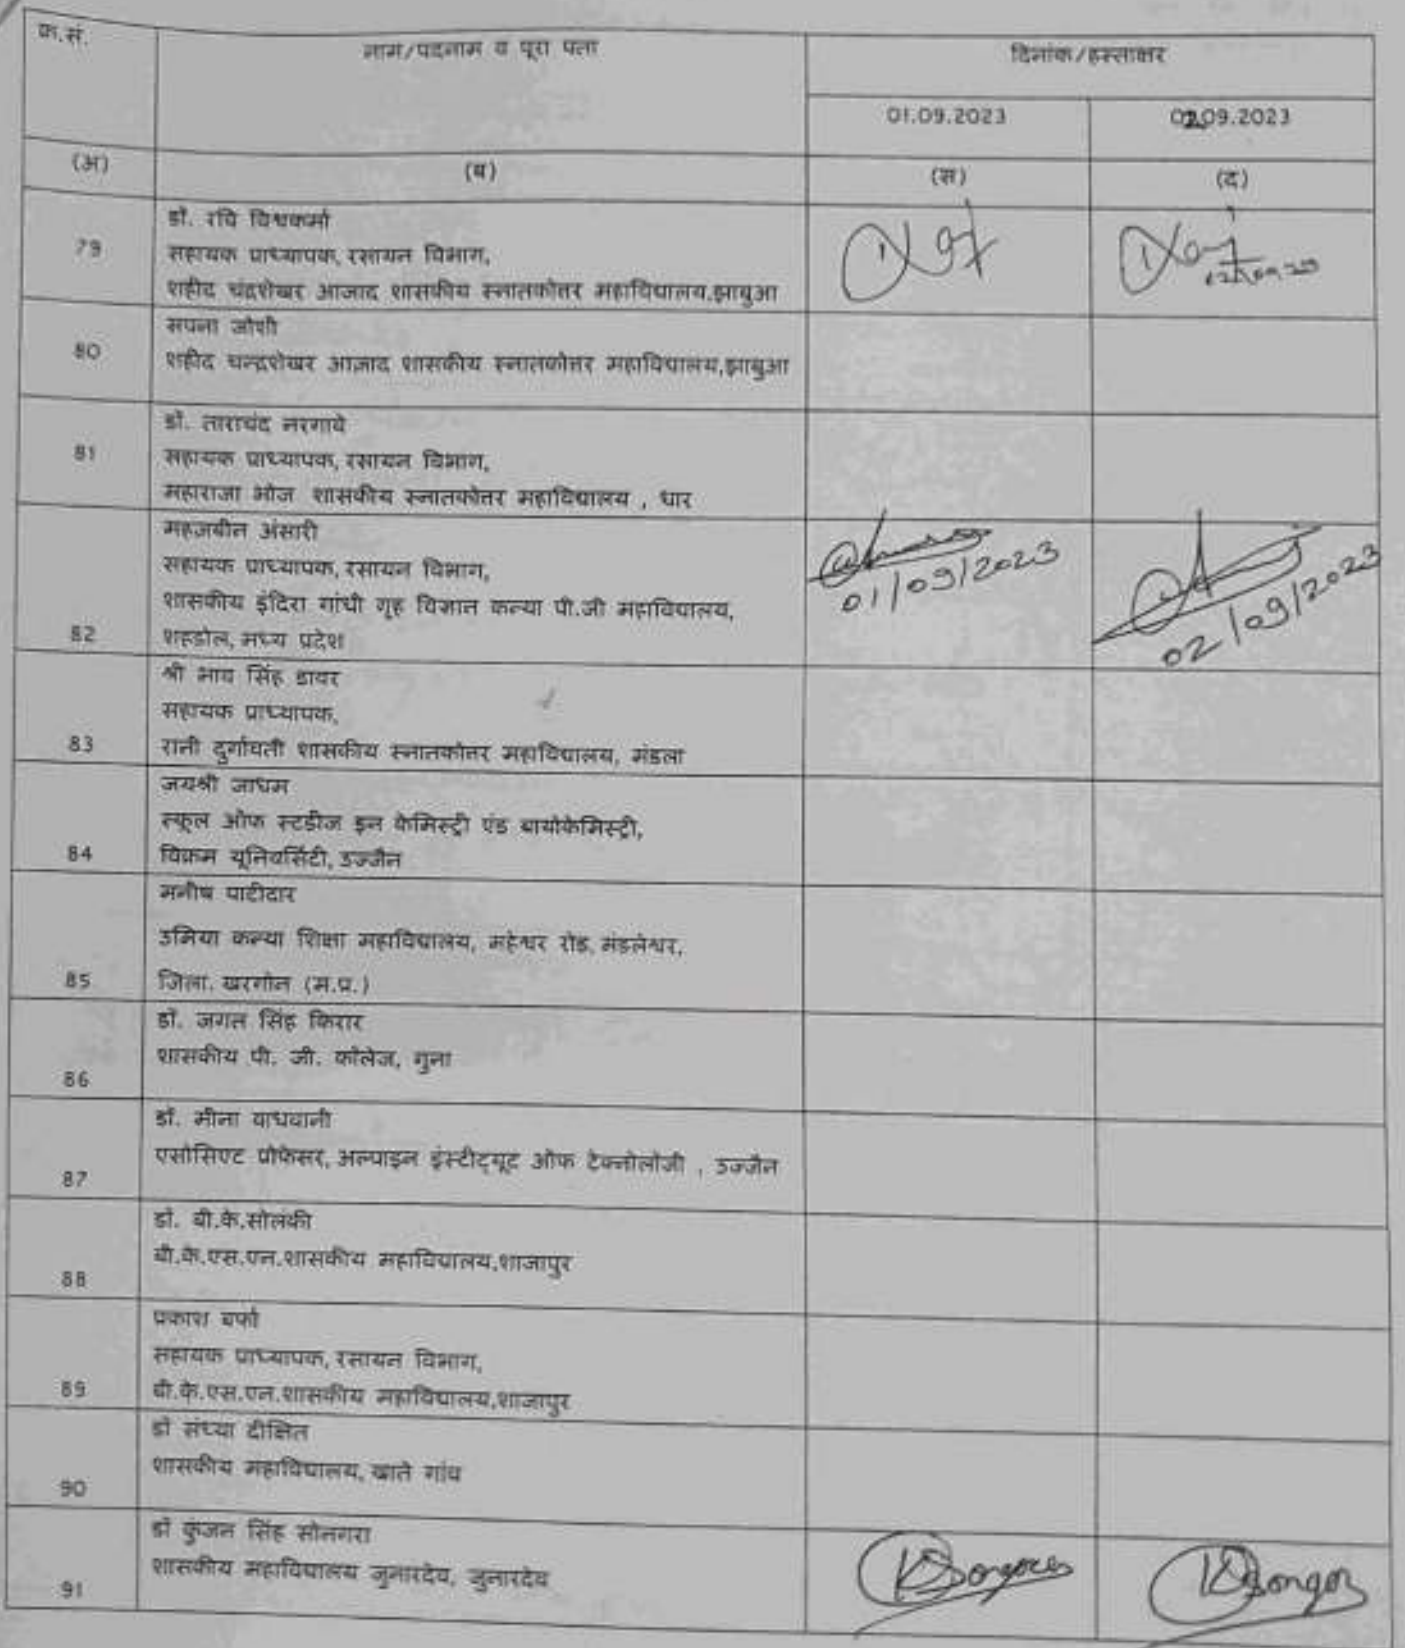 क्र.सं.
नाम/पदनाम व पूरा पता
दिनांक/हस्ताक्षर
01.09.2023
02.09.2023
(अ)
(ब)
(स)
(द)
79
डॉ. रवि विश्वकर्मा
सहायक प्राध्यापक, रसायन विभाग,
शहीद चंद्रशेखर आजाद शासकीय स्नातकोत्तर महाविद्यालय,झाबुआ
80
सपना जोशी
शहीद चन्द्रशेखर आज़ाद शासकीय स्नातकोत्तर महाविद्यालय,झाबुआ
81
डॉ. ताराचंद नरगावे
सहायक प्राध्यापक, रसायन विभाग,
महाराजा भोज शासकीय स्नातकोत्तर महाविद्यालय , धार
82
महजबीन अंसारी
सहायक प्राध्यापक, रसायन विभाग,
शासकीय इंदिरा गांधी गृह विज्ञान कन्या पी.जी महाविद्यालय,
शहडोल, मध्य प्रदेश
01/09/2023
02/09/2023
83
श्री भाव सिंह डावर
सहायक प्राध्यापक,
रानी दुर्गावती शासकीय स्नातकोत्तर महाविद्यालय, मंडला
84
जयश्री जाधम
स्कूल ऑफ स्टडीज इन केमिस्ट्री एंड बायोकेमिस्ट्री,
विक्रम यूनिवर्सिटी, उज्जैन
85
मनीष पाटीदार
उमिया कन्या शिक्षा महाविद्यालय, महेश्वर रोड, मंडलेश्वर,
जिला. खरगोन (म.प्र.)
86
डॉ. जगत सिंह किरार
शासकीय पी. जी. कॉलेज, गुना
87
डॉ. मीना वाधवानी
एसोसिएट प्रोफेसर, अल्पाइन इंस्टीट्यूट ऑफ टेक्नोलॉजी , उज्जैन
88
डॉ. बी.के.सोलंकी
बी.के.एस.एन.शासकीय महाविद्यालय,शाजापुर
89
प्रकाश बर्फा
सहायक प्राध्यापक, रसायन विभाग,
बी.के.एस.एन.शासकीय महाविद्यालय,शाजापुर
90
डॉ संध्या दीक्षित
शासकीय महाविद्यालय, खाते गांव
91
डॉ कुंजन सिंह सोनगरा
शासकीय महाविद्यालय जुनारदेव, जुनारदेव